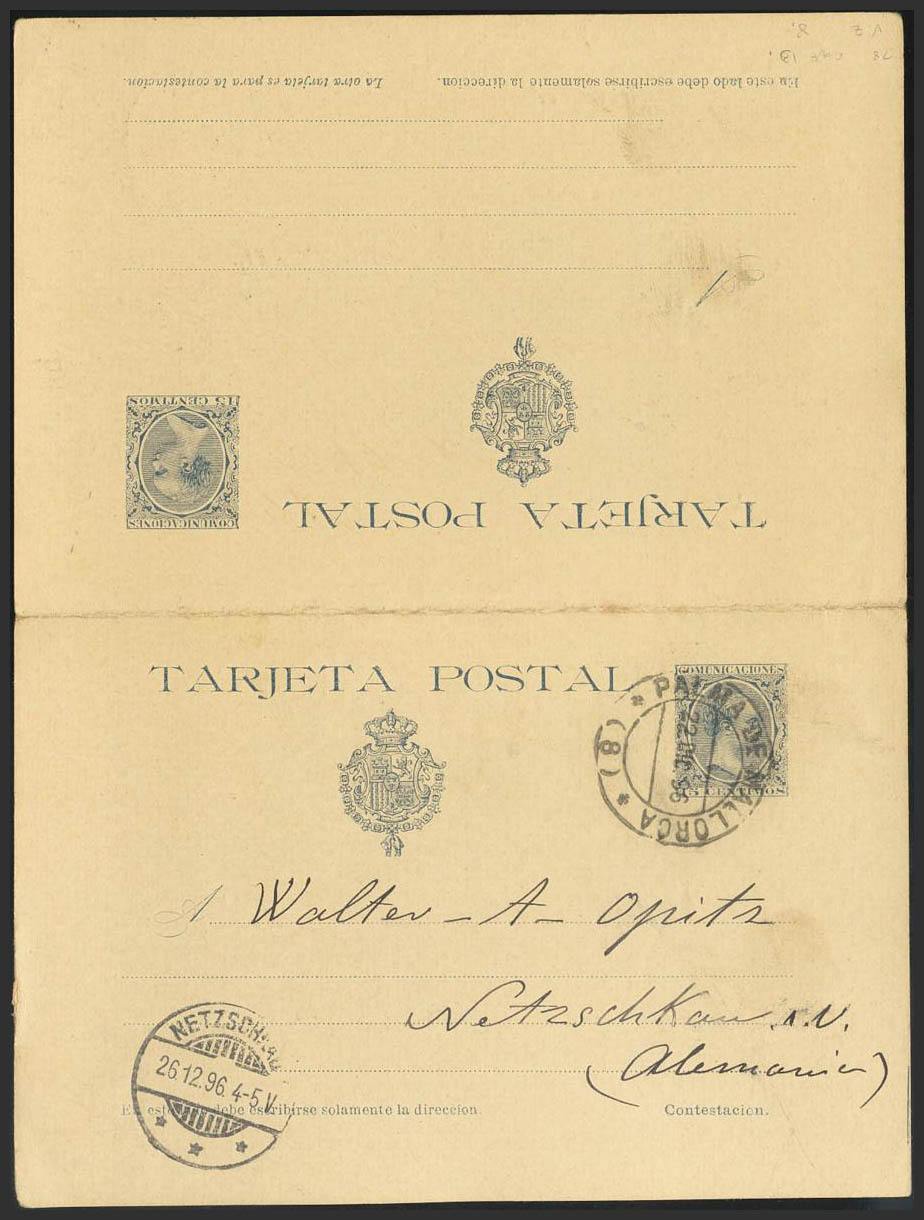 En este lado debe escribirse solamente la direccion. La otra tarjeta es para la contestacion.
TARJETA POSTAL
COMUNICACIONES
15 CENTIMOS
TARJETA POSTAL
COMUNICACIONES
CENTIMOS
* PALMA DE MALLORCA *
(8)
22 DIC 96
A Walter - A - Opitz
Netzschkau i. V.
(Alemania)
NETZSCHKAU
26.12.96. 4-5 V.
En este debe escribirse solamente la direccion. Contestacion.